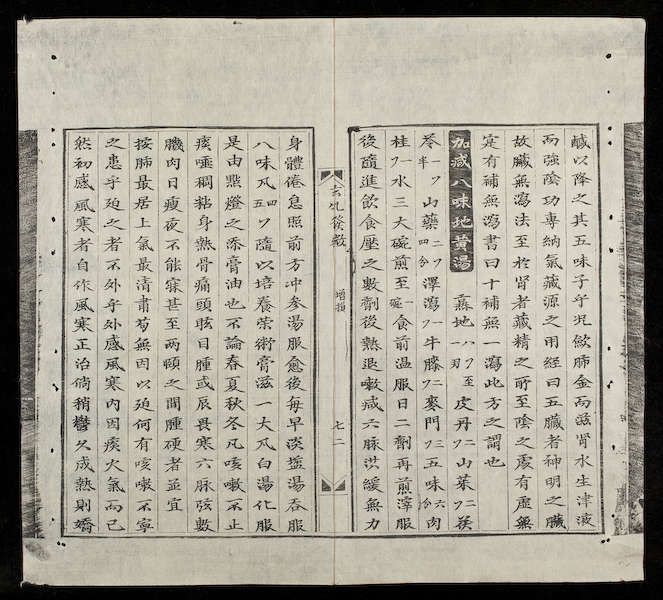 鹹以降之其五味子乎况歛肺金而滋肾水生津液
而強陰功專納氣藏源之用經曰五臟者神明之臟
故臟無瀉法至於肾者藏精之所至陰之處有虛無
寔有補無瀉書曰十補無一瀉此方之謂也
加減八味地黄湯 熹地八刁至一刃 皮丹二刁 山茱二刁 茯
苓一刁半 山藥二刁四分 澤瀉一刁 牛膝二刁 麥門三刁 五味六分 肉
桂一刁 水三大碗煎至一碗食前温服日二劑再煎滓服
後隨進飲食壓之數劑後熱退嗽减六脉洪緩無力
身體倦怠照前方冲参湯服愈後每早淡塩湯吞服
八味凡四刁隨以培養荣術膏滋一大凡白湯化服
是由㸃燈之添膏油也不論春夏秋冬凡咳嗽不止
痰唾稠粘身熱骨痛頭眩目腫或辰畏寒六脉弦數
䐃肉日瘦夜不能寐甚至两頤之間腫硬者並宜
按肺最居上氣最清肅苟無因以廹何有咳嗽不寧
之患乎廹之者不外乎外感風寒内因痰火氣而已
然初感風寒者自作風寒正治倘稍鬱久成熱則嬌
玄牝發微
增損
七二